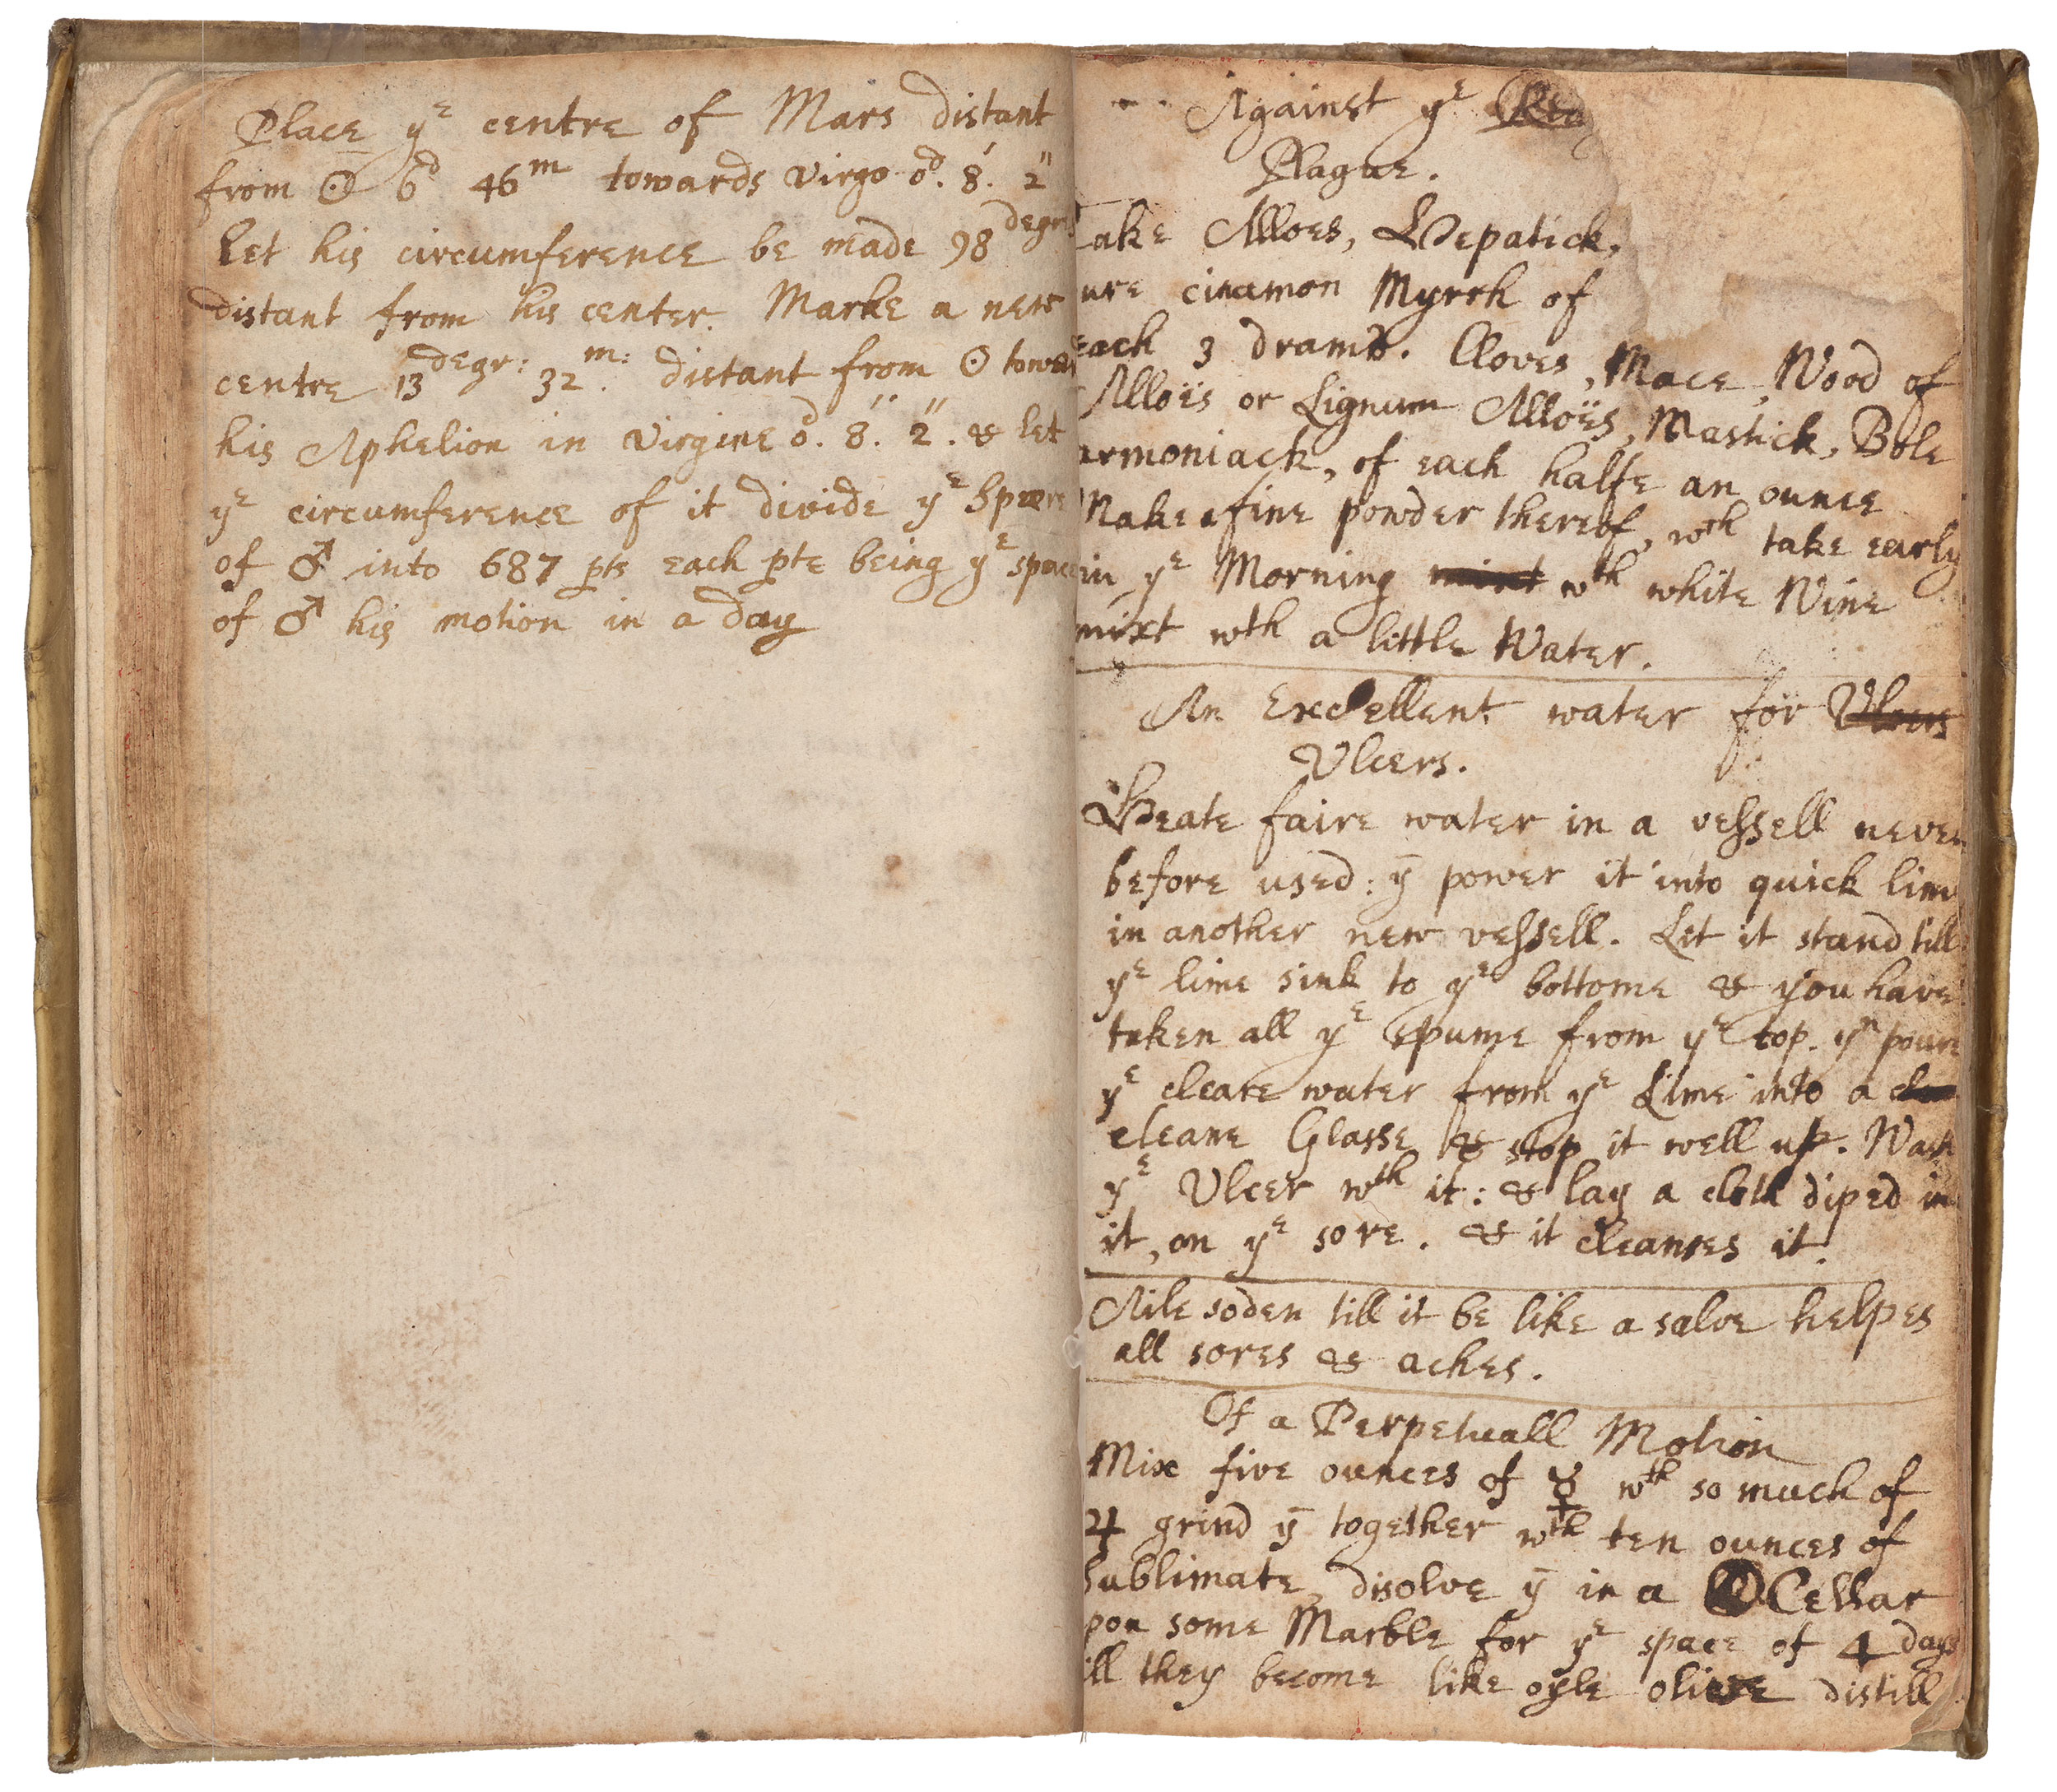 Place yᵉ centre of Mars distant
from ☉ 6ᵈ 46ᵐ towards Virgo 0ᵈ. 8'. 2"
Let his circumference be made 98 degrs
distant from his center. Marke a new
centre 13 degr: 32 m: distant from ☉ towar
his Aphelion in Virgine 0ᵈ. 8'. 2". & let
yᵉ circumference of it divide yᵉ Spære
of ♂ into 687 pts each pte being yᵉ space
of ♂ his motion in a day
Against yᵉ
Plague.
Take Alloes, Hepatick,
ure cinamon Myrrh of
each 3 drams. Cloves, Mace, Wood of
Alloïs or Lignum Alloës, Mastick, Bole
armoniack, of each halfe an ounce
Make fine powder thereof, wᵗʰ take early
in yᵉ Morning mixt wᵗʰ white Wine
mixt wᵗʰ a little Water.
An Excellent water for Ulcers
Vlcers.
Heate faire water in a vessell never
before used: ȳ power it into quick lime
in another new vessell. Let it stand till
yᵉ lime sink to yᵉ bottome & you have
taken all yᵉ spume from yᵉ top. yⁿ poure
yᵉ cleare water from yᵉ Lime into a
cleane Glasse & stop it well up. Wash
yᵉ Vlcer wᵗʰ it: & lay a cloth diped in
it, on yᵉ sore. & it cleanses it.
Aile soden till it be like a salve helpes
all sores & aches.
Of a Perpetuall Motion
Mix five ounces of ☿ wᵗʰ so much of
♃ grind ȳ together wᵗʰ ten ounces of
Sublimate, disolve ȳ in a Cellar
pon some Marble for yᵉ space of 4 days
ill they become like oyle olive distill